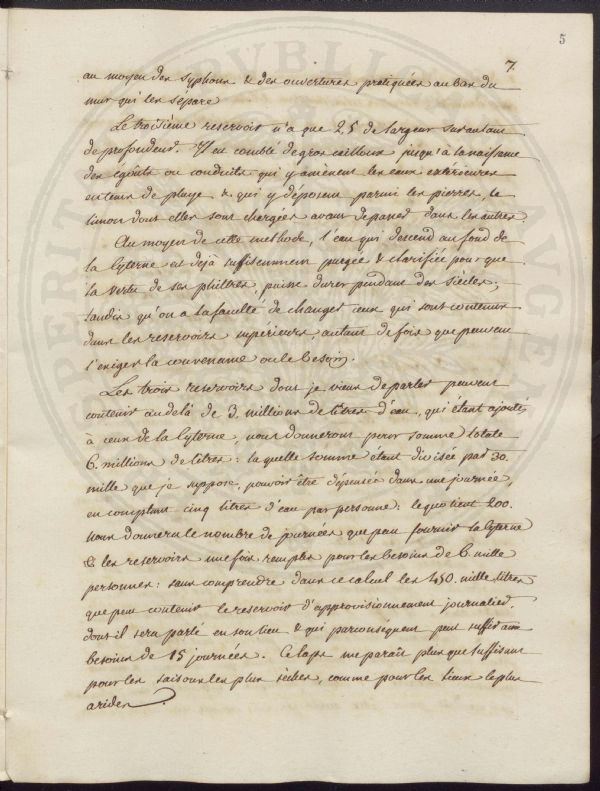 5
7.
au moyen des syphons & des ouvertures pratiquées au bas du
mur qui les sépare
Le troisième reservoir n'a que 25 de largeur sur autant
de profondeur. Il est comblé de gros cailloux jusqu'à la naissance
des égoûts ou conduits qui y amènent les eaux extérieures
en tems de pluye & qui y déposent parmi les pierres, le
limon dont elles sont chargées avant de passer dans les autres.
Au moyen de cette methode, l'eau qui descend au fond de
la Cyterne est déjà suffisemment purgée & clarifiée pour que
la vertu de ses philtres, puisse durer pendant des siècles;
tandis qu'on a la faculté de changer ceux qui sont contenus
dans les reservoirs supérieurs, autant de fois que peuvent
l'exiger la convenance ou le besoin.
Les trois reservoirs dont je viens de parler peuvent
contenir au delà de 3. millions de litres d'eau, qui étant ajouté
à ceux de la Cyterne, nous donneront pour somme totale
6. millions de litres: la quelle somme etant divisée par 30.
mille que je suppose, pouvoir être dépensée dans une journée,
en comptant cinq litres d'eau par personne: le quotient 200.
nous donnera le nombre de journées que peut fournir la Cyterne
& les reservoirs une fois remplis pour les besoins de 6. mille
personnes: sans comprendre dans ce calcul les 450. mille litres
que peut contenir le reservoir d'approvisionnement journalier.
dont il sera parlé en son lieu & qui parconséquent peut suffir aux
besoins de 15 journées. Ce laps me paraît plus que suffisant
pour les saisons les plus sèches, comme pour les lieux les plus
arides.